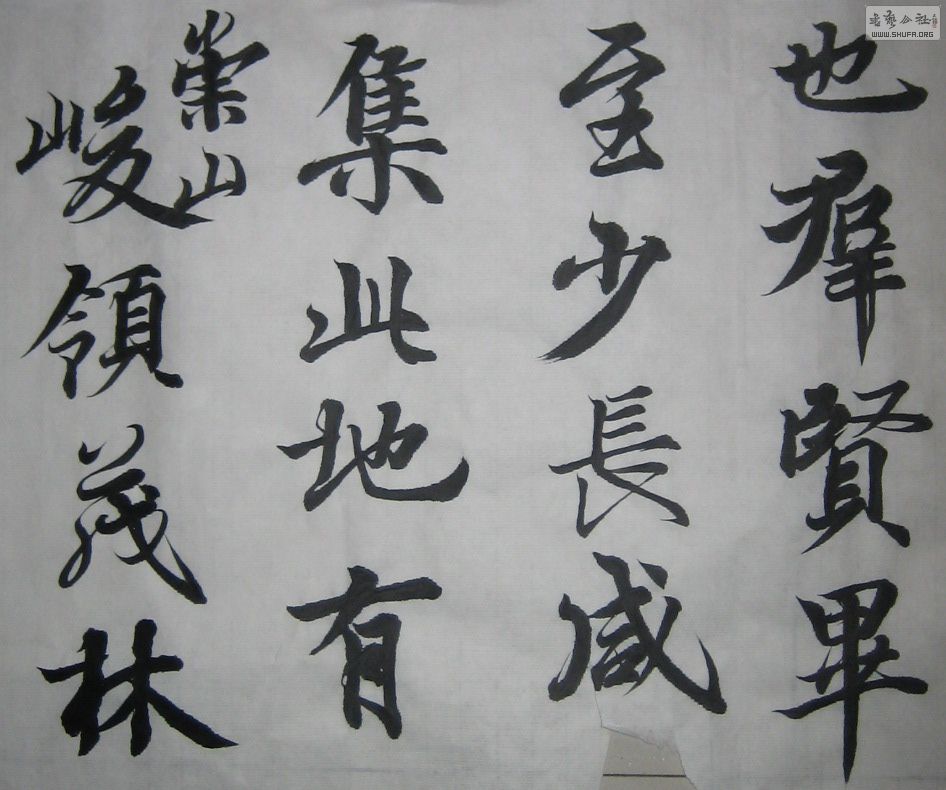 也羣賢畢
至少長咸
集此地有
崇山
峻領茂林
书艺公社
WWW.SHUFA.ORG